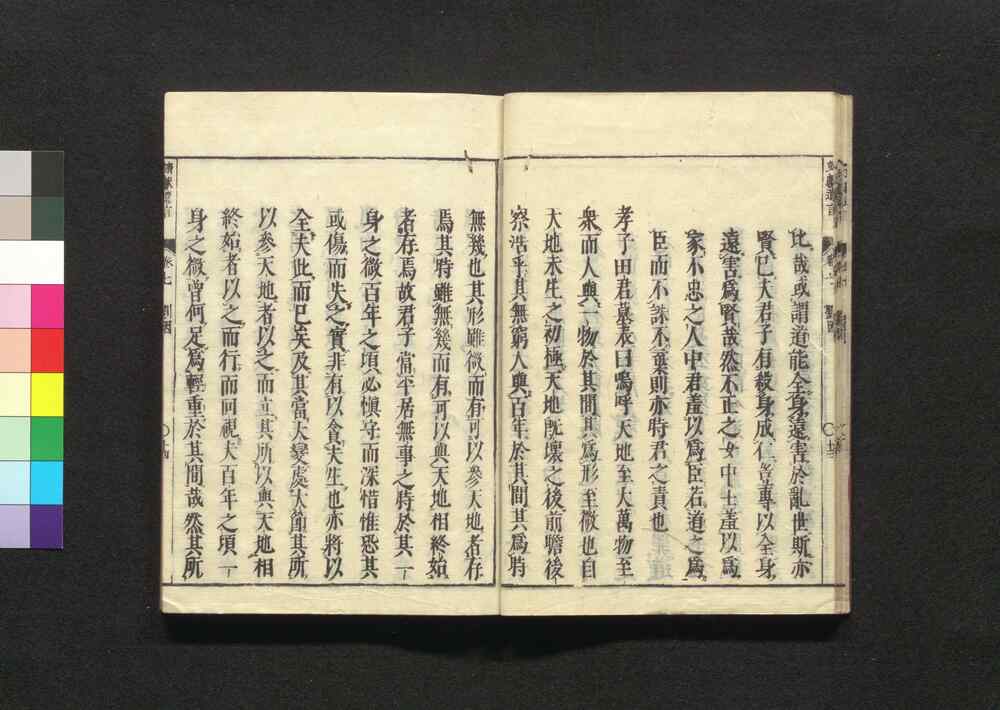 此哉或謂道能全身遠害於亂世斯亦
賢已夫君子有殺身成仁苦專以全身
遠害爲賢哉然不正之女中士羞以爲
家不忠之人中君羞以爲臣若道之爲
臣而不誅不棄則亦時君之責也
孝子田君墓表曰嗚呼天地至大萬物至
衆而人與一物於其間其爲形至微也自
天地未生之初極天地旣壞之後前瞻後
察浩乎其無窮人與百年於其間其爲時
無幾也其形雖微而有可以參天地者存
焉其時雖無幾而有可以與天地相終始
者存焉故君子當平居無事之時於其一
身之微百年之頃必愼守而深惜惟恐其
或傷而失之實非有以貪夫生也亦將以
全夫此而已矣及其當大變處大節其所
以參天地者以之而立其所以與天地相
終始者以之而行而回視夫百年之頃一
身之微曾何足爲輕重於其間哉然其所
卷七 劉因